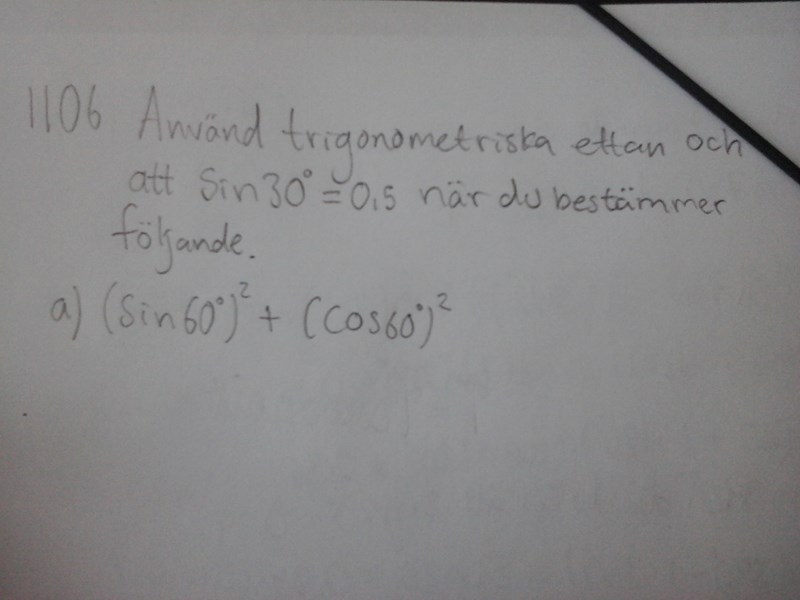 1106 Använd trigonometriska ettan och
att Sin30° = 0,5 när du bestämmer
följande.
a) (Sin60°)² + (Cos60°)²